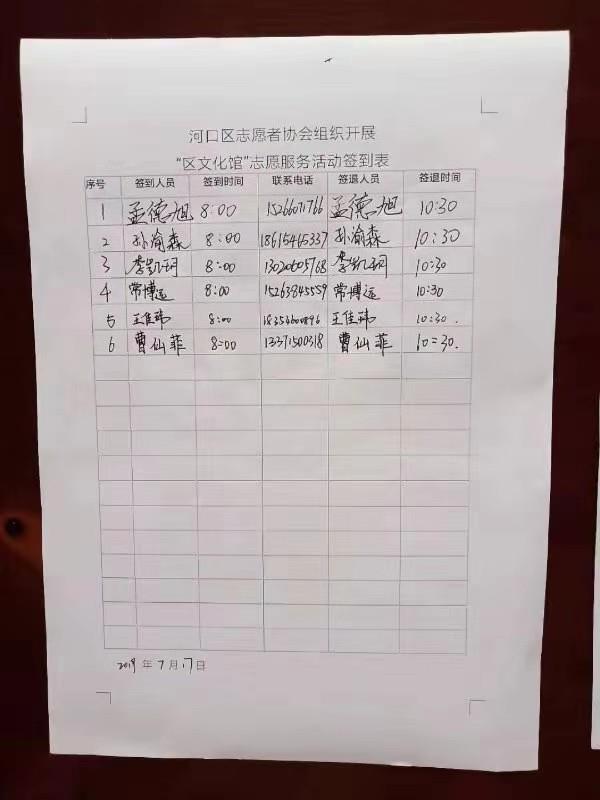 河口区志愿者协会组织开展
“区文化馆”志愿服务活动签到表
序号 签到人员 签到时间 联系电话 签退人员 签退时间
1 孟德旭 8:00 15266071766 孟德旭 10:30
2 孙渝森 8:00 18615465337 孙渝森 10:30
3 李凯珂 8:00 13020605768 李凯珂 10:30
4 常博运 8:00 15263845559 常博运 10:30
5 王佳玮 8:00 王佳玮 10:30.
6 曹仙菲 8:00 13371500318 曹仙菲 10:30.
2019年7月17日